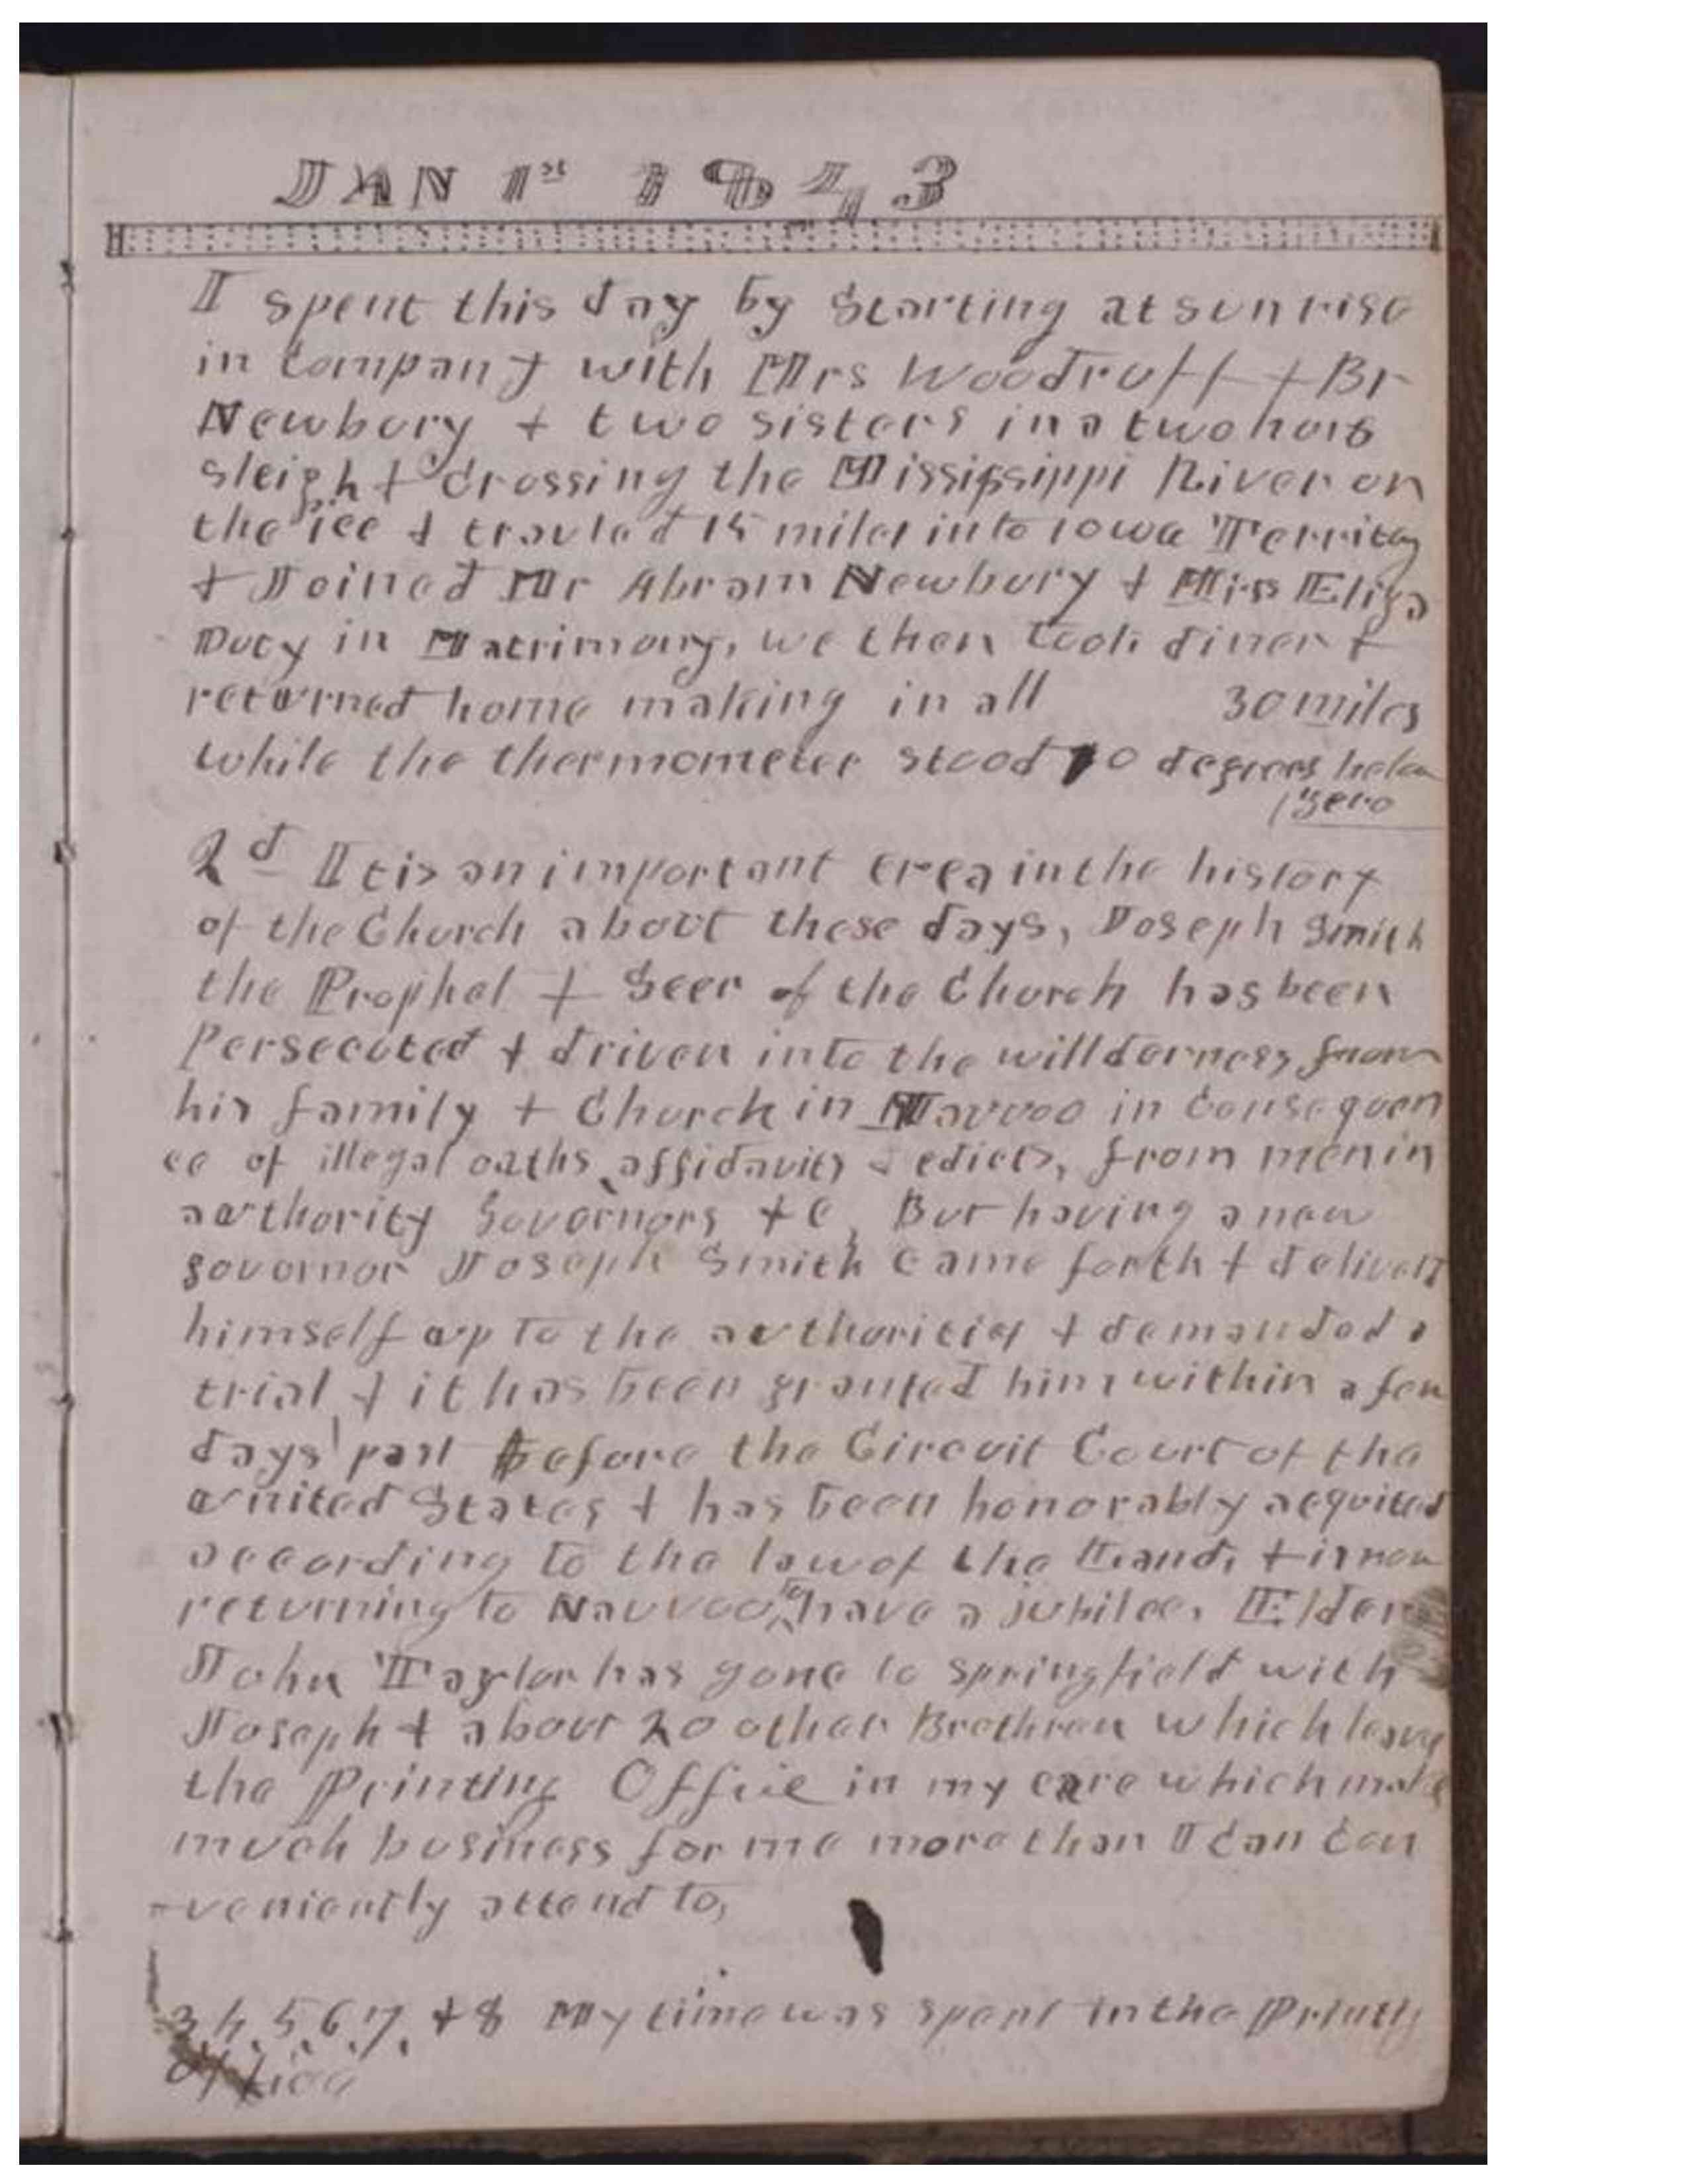 JAN 1st 1843
I spent this day by Starting at sunrise
in Company with Mrs Woodruff & Br
Newbury & two sisters in a two hors
sleigh & Crossing the Mississippi River on
the ice & travled 15 miles into Iowa Territoy
& Joined Mr Abram Newbury & Miss Eliza
Duty in Matrimony, we then took diner &
returned home making in all 30 miles
while the thermometer stood 10 degrees below
zero
2d It is an important erea in the history
of the Church about these days, Joseph Smith
the Prophet & Seer of the Church has been
Persecuted & driven into the willderness from
his family & Church in Nauvoo in Consequen
ce of illegal oaths, affidavits & edicts, from men in
authority Governors &c, But having a new
governor Joseph Smith Came forth & deliverd
himself up to the authorities & demanded a
trial & it has been granted him within a few
days past before the Circuit Court of the
United States & has been honorably acquited
according to the law of the Land, & is now
returning to Nauvoo, to have a jubilee. Elder
John Taylor has gone to Springfield with
Joseph & about 20 other Brethren which leavs
the Printing Office in my care which make
much business for me more than I Can Con
-veniently attend to,
3, 4, 5, 6, 7, & 8 My time was spent in the Printig
office